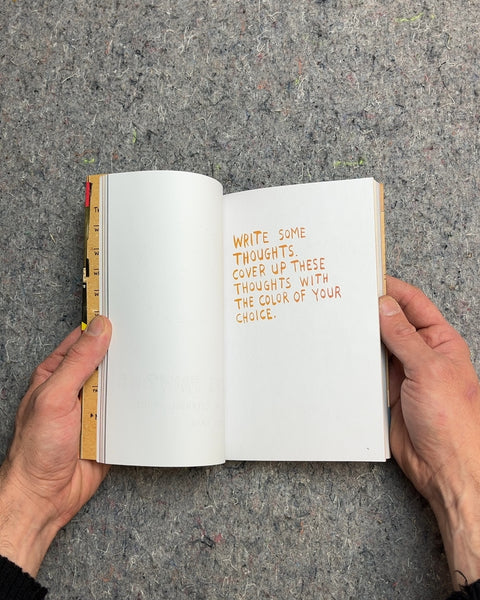 WRITE SOME
THOUGHTS.
COVER UP THESE
THOUGHTS WITH
THE COLOR OF YOUR
CHOICE.